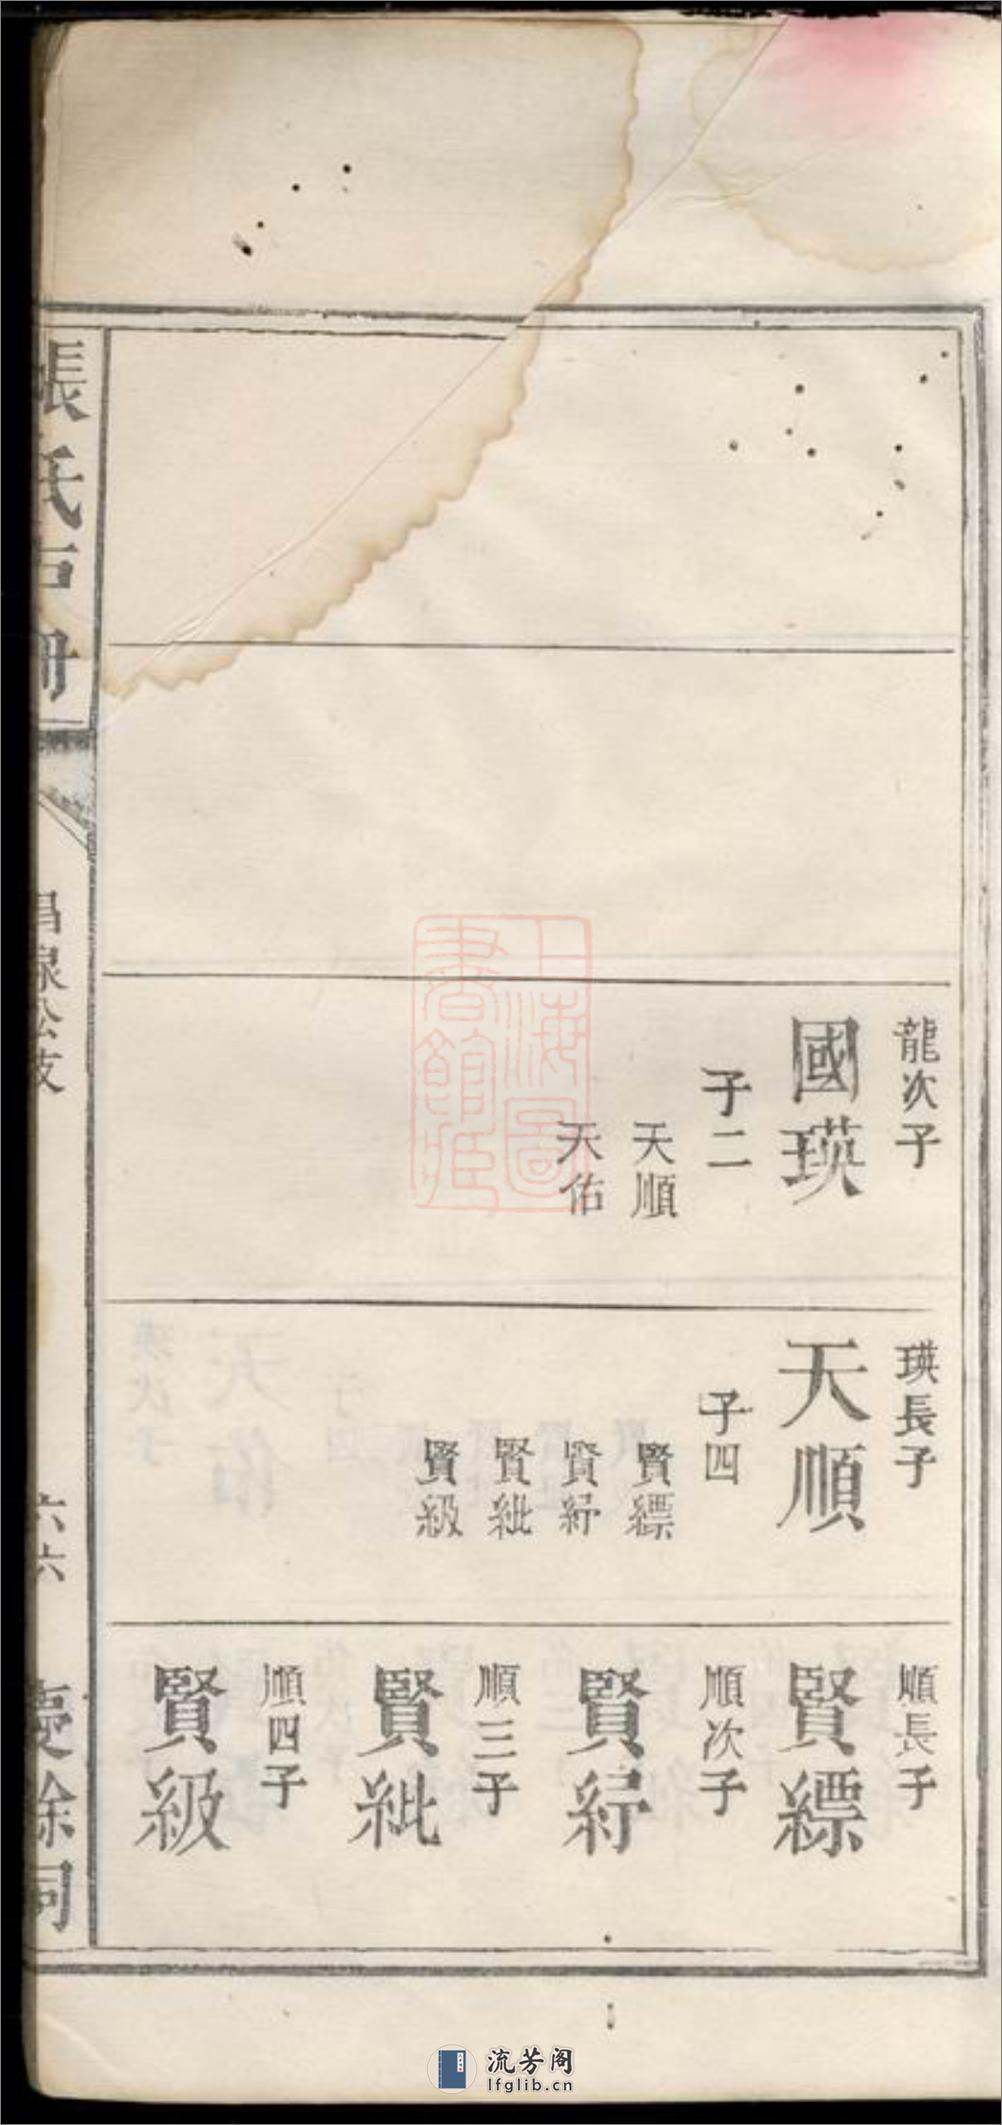 龍次子
國瑛
子二
天順
天佑
瑛長子
天順
子四
賢縹
賢紆
賢紕
賢級
順長子
賢縹
順次子
賢紆
順三子
賢紕
順四子
賢級
張氏
昌泉公支
六六
慶餘同
上海圖
書館藏
流芳阁
lfglib.cn